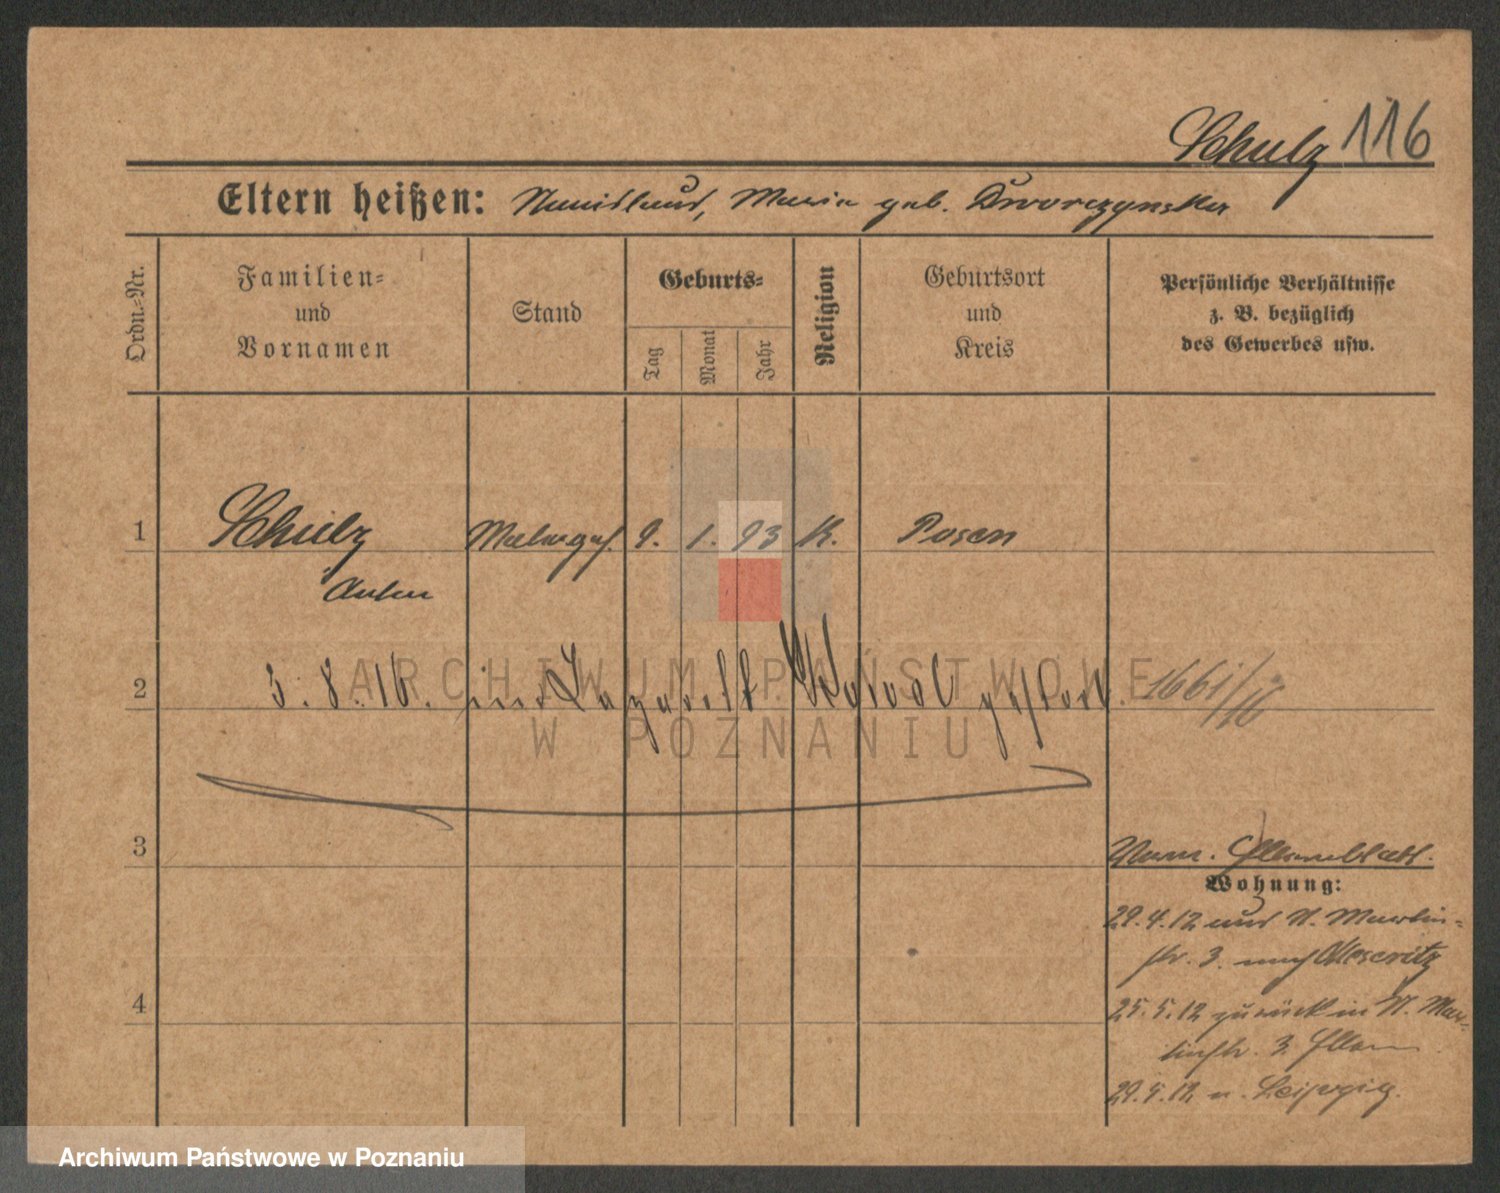 Schulz 116
Eltern heißen: Stanislaus, Maria geb. Dworczynska
Ordn.-Nr.
Familien-
und
Vornamen
Stand
Geburts-
Tag
Monat
Jahr
Religion
Geburtsort
und
Kreis
Persönliche Verhältnisse
z. B. bezüglich
des Gewerbes usw.
1 Schulz Malergeh. 9. 1. 93 K. Posen
Anton
2 3. 8. 16. im Lazarett gestorb. 1661/16
3
Elternblatt.
Wohnung:
29.4.12 aus St. Martin-
str. 3. nach Meseritz
25.5.12 zurück in St. Mar-
tinstr. 3. Eltern
29.5.12 n. Leipzig.
4
ARCHIWUM PAŃSTWOWE
W POZNANIU
Archiwum Państwowe w Poznaniu